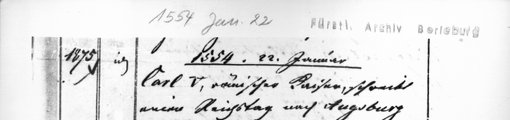 1554 Jan. 22
Fürstl. Archiv Berleburg
1875
1554. 22. Januar
Carl V, römischer Kaiser, schreibt
einen Reichstag nach Augsburg